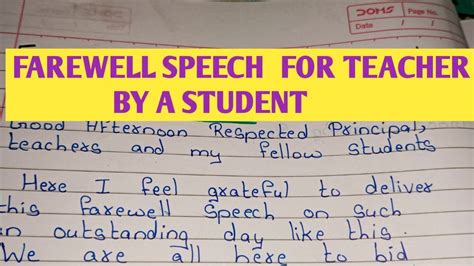 DOMS
Page No.
Date
FAREWELL SPEECH FOR TEACHER
BY A STUDENT
Good Afternoon Respected Principal,
teachers and my fellow students
Here I feel grateful to deliver
this farewell Speech on such
an outstanding day like this.
We are all here to bid